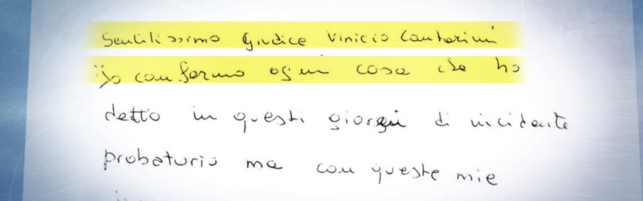 Gentilissimo Giudice Vinicio Cantarini
Io confermo ogni cosa che ho
detto in questi giorni di incidente
probatorio ma con queste mie